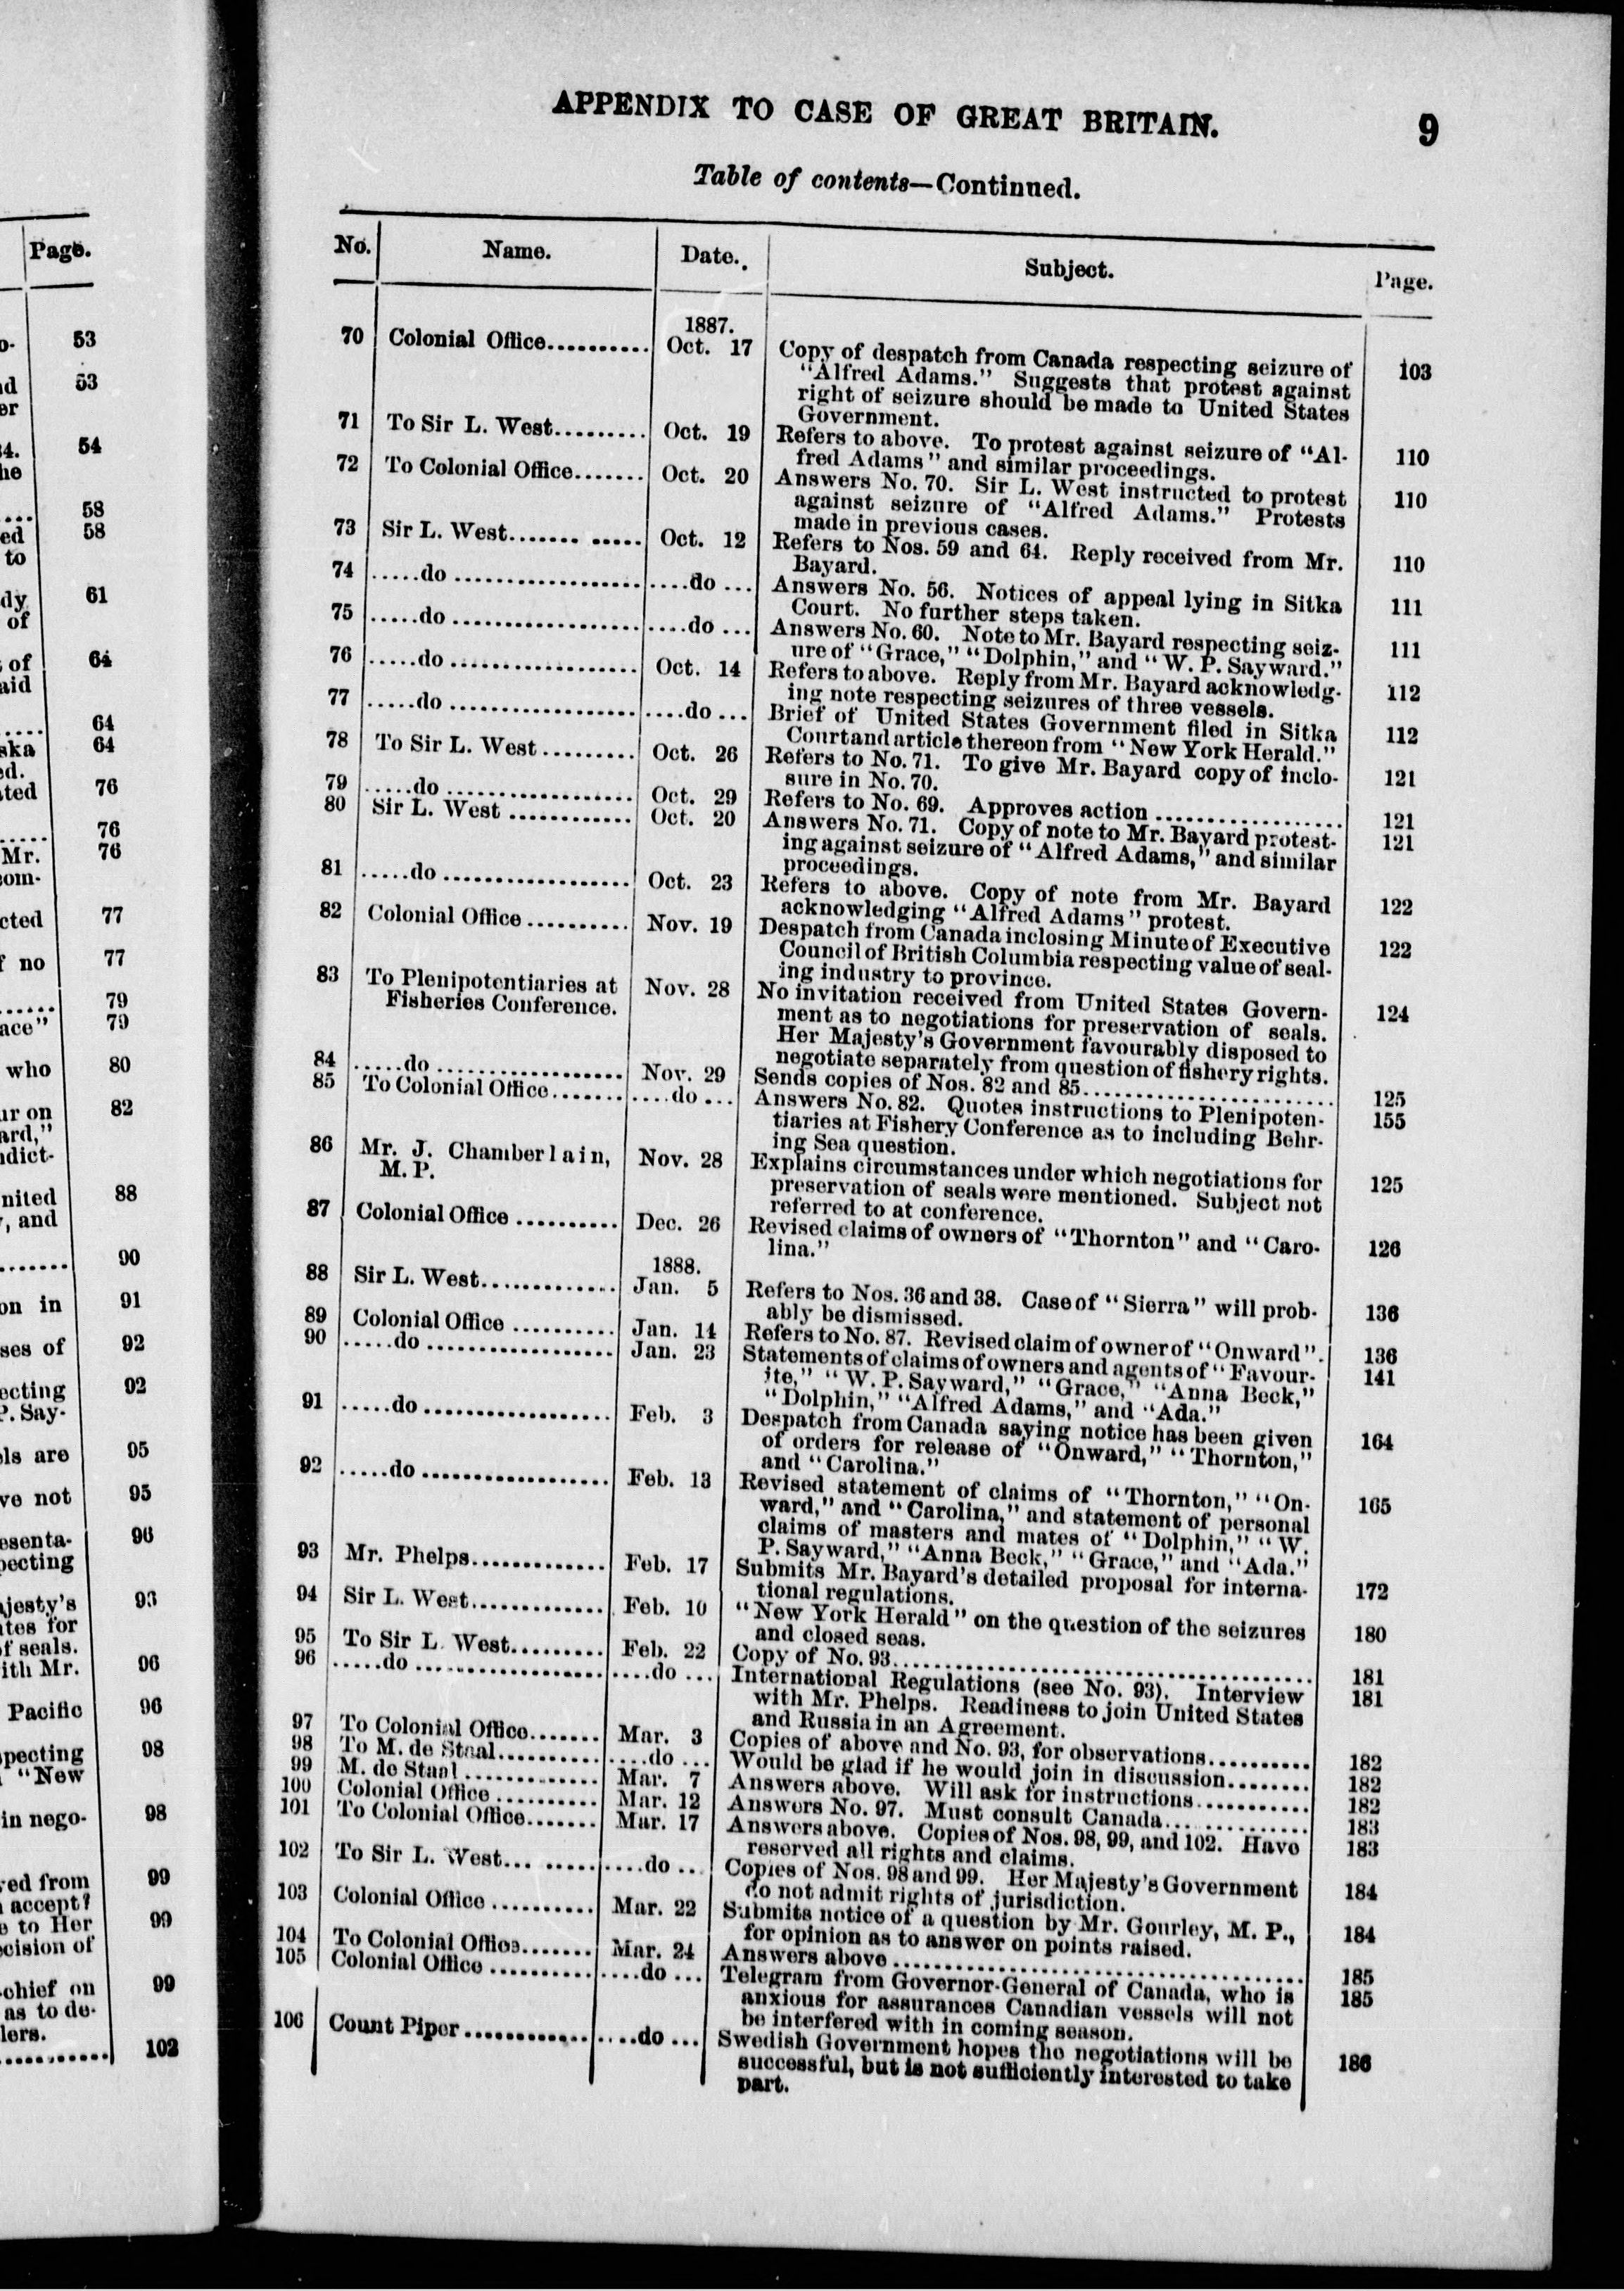 Page.
53
53
54
58
58
61
64
64
64
76
76
76
77
77
79
79
80
82
88
90
91
92
92
95
95
96
93
96
96
98
98
99
99
99
102
ed
to
of
of
aid
no
ace"
who
ur on
ard,"
dict-
nited
, and
on in
ses of
ecting
P. Say-
ls are
ve not
esenta-
pecting
ajesty's
ates for
of seals.
ith Mr.
Pacific
specting
"New
in nego-
ved from
accept?
e to Her
ecision of
chief on
as to de-
lers.
APPENDIX TO CASE OF GREAT BRITAIN. 9
Table of contents—Continued.
No. Name. Date. Subject. Page.
1887.
70 Colonial Office.......... Oct. 17 Copy of despatch from Canada respecting seizure of 103
"Alfred Adams." Suggests that protest against
right of seizure should be made to United States
Government.
71 To Sir L. West......... Oct. 19 Refers to above. To protest against seizure of "Al- 110
fred Adams" and similar proceedings.
72 To Colonial Office....... Oct. 20 Answers No. 70. Sir L. West instructed to protest 110
against seizure of "Alfred Adams." Protests
made in previous cases.
73 Sir L. West....... ..... Oct. 12 Refers to Nos. 59 and 64. Reply received from Mr. 110
Bayard.
74 .....do ................... ....do ... Answers No. 56. Notices of appeal lying in Sitka 111
Court. No further steps taken.
75 .....do ................... ....do ... Answers No. 60. Note to Mr. Bayard respecting seiz- 111
ure of "Grace," "Dolphin," and "W. P. Sayward."
76 .....do ................... Oct. 14 Refers to above. Reply from Mr. Bayard acknowledg- 112
ing note respecting seizures of three vessels.
77 .....do ................... ....do ... Brief of United States Government filed in Sitka 112
Court and article thereon from "New York Herald."
78 To Sir L. West ......... Oct. 26 Refers to No. 71. To give Mr. Bayard copy of inclo- 121
sure in No. 70.
79 .....do ................... Oct. 29 Refers to No. 69. Approves action .................. 121
80 Sir L. West ............ Oct. 20 Answers No. 71. Copy of note to Mr. Bayard protest- 121
ing against seizure of "Alfred Adams," and similar
proceedings.
81 .....do ................... Oct. 23 Refers to above. Copy of note from Mr. Bayard 122
acknowledging "Alfred Adams" protest.
82 Colonial Office .......... Nov. 19 Despatch from Canada inclosing Minute of Executive 122
Council of British Columbia respecting value of seal-
ing industry to province.
83 To Plenipotentiaries at Nov. 28 No invitation received from United States Govern- 124
Fisheries Conference. ment as to negotiations for preservation of seals.
Her Majesty's Government favourably disposed to
negotiate separately from question of fishery rights.
84 .....do ................... Nov. 29 Sends copies of Nos. 82 and 85........................ 125
85 To Colonial Office....... ....do ... Answers No. 82. Quotes instructions to Plenipoten- 155
tiaries at Fishery Conference as to including Behr-
ing Sea question.
86 Mr. J. Chamberlain, Nov. 28 Explains circumstances under which negotiations for 125
M. P. preservation of seals were mentioned. Subject not
referred to at conference.
87 Colonial Office .......... Dec. 26 Revised claims of owners of "Thornton" and "Caro- 126
lina."
1888.
88 Sir L. West............. Jan. 5 Refers to Nos. 36 and 38. Case of "Sierra" will prob- 136
ably be dismissed.
89 Colonial Office .......... Jan. 14 Refers to No. 87. Revised claim of owner of "Onward". 136
90 .....do ................... Jan. 23 Statements of claims of owners and agents of "Favour- 141
ite," "W. P. Sayward," "Grace," "Anna Beck,"
"Dolphin," "Alfred Adams," and "Ada."
91 .....do ................... Feb. 3 Despatch from Canada saying notice has been given 164
of orders for release of "Onward," "Thornton,"
and "Carolina."
92 .....do ................... Feb. 13 Revised statement of claims of "Thornton," "On- 165
ward," and "Carolina," and statement of personal
claims of masters and mates of "Dolphin," "W.
P. Sayward," "Anna Beck," "Grace," and "Ada."
93 Mr. Phelps............. Feb. 17 Submits Mr. Bayard's detailed proposal for interna- 172
tional regulations.
94 Sir L. West............. Feb. 10 "New York Herald" on the question of the seizures 180
and closed seas.
95 To Sir L. West......... Feb. 22 Copy of No. 93....................................... 181
96 .....do ................... ....do ... International Regulations (see No. 93). Interview 181
with Mr. Phelps. Readiness to join United States
and Russia in an Agreement.
97 To Colonial Office....... Mar. 3 Copies of above and No. 93, for observations.......... 182
98 To M. de Staal.......... ....do ... Would be glad if he would join in discussion........ 182
99 M. de Staal ............. Mar. 7 Answers above. Will ask for instructions........... 182
100 Colonial Office .......... Mar. 12 Answers No. 97. Must consult Canada.............. 183
101 To Colonial Office....... Mar. 17 Answers above. Copies of Nos. 98, 99, and 102. Have 183
reserved all rights and claims.
102 To Sir L. West... ...... ....do ... Copies of Nos. 98 and 99. Her Majesty's Government 184
do not admit rights of jurisdiction.
103 Colonial Office .......... Mar. 22 Submits notice of a question by Mr. Gourley, M. P., 184
for opinion as to answer on points raised.
104 To Colonial Office....... Mar. 24 Answers above ....................................... 185
105 Colonial Office .......... ....do ... Telegram from Governor-General of Canada, who is 185
anxious for assurances Canadian vessels will not
be interfered with in coming season.
106 Count Piper............. ....do ... Swedish Government hopes the negotiations will be 186
successful, but is not sufficiently interested to take
part.